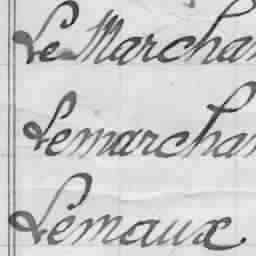 Le Marchan
Lemarchan
Lemaux